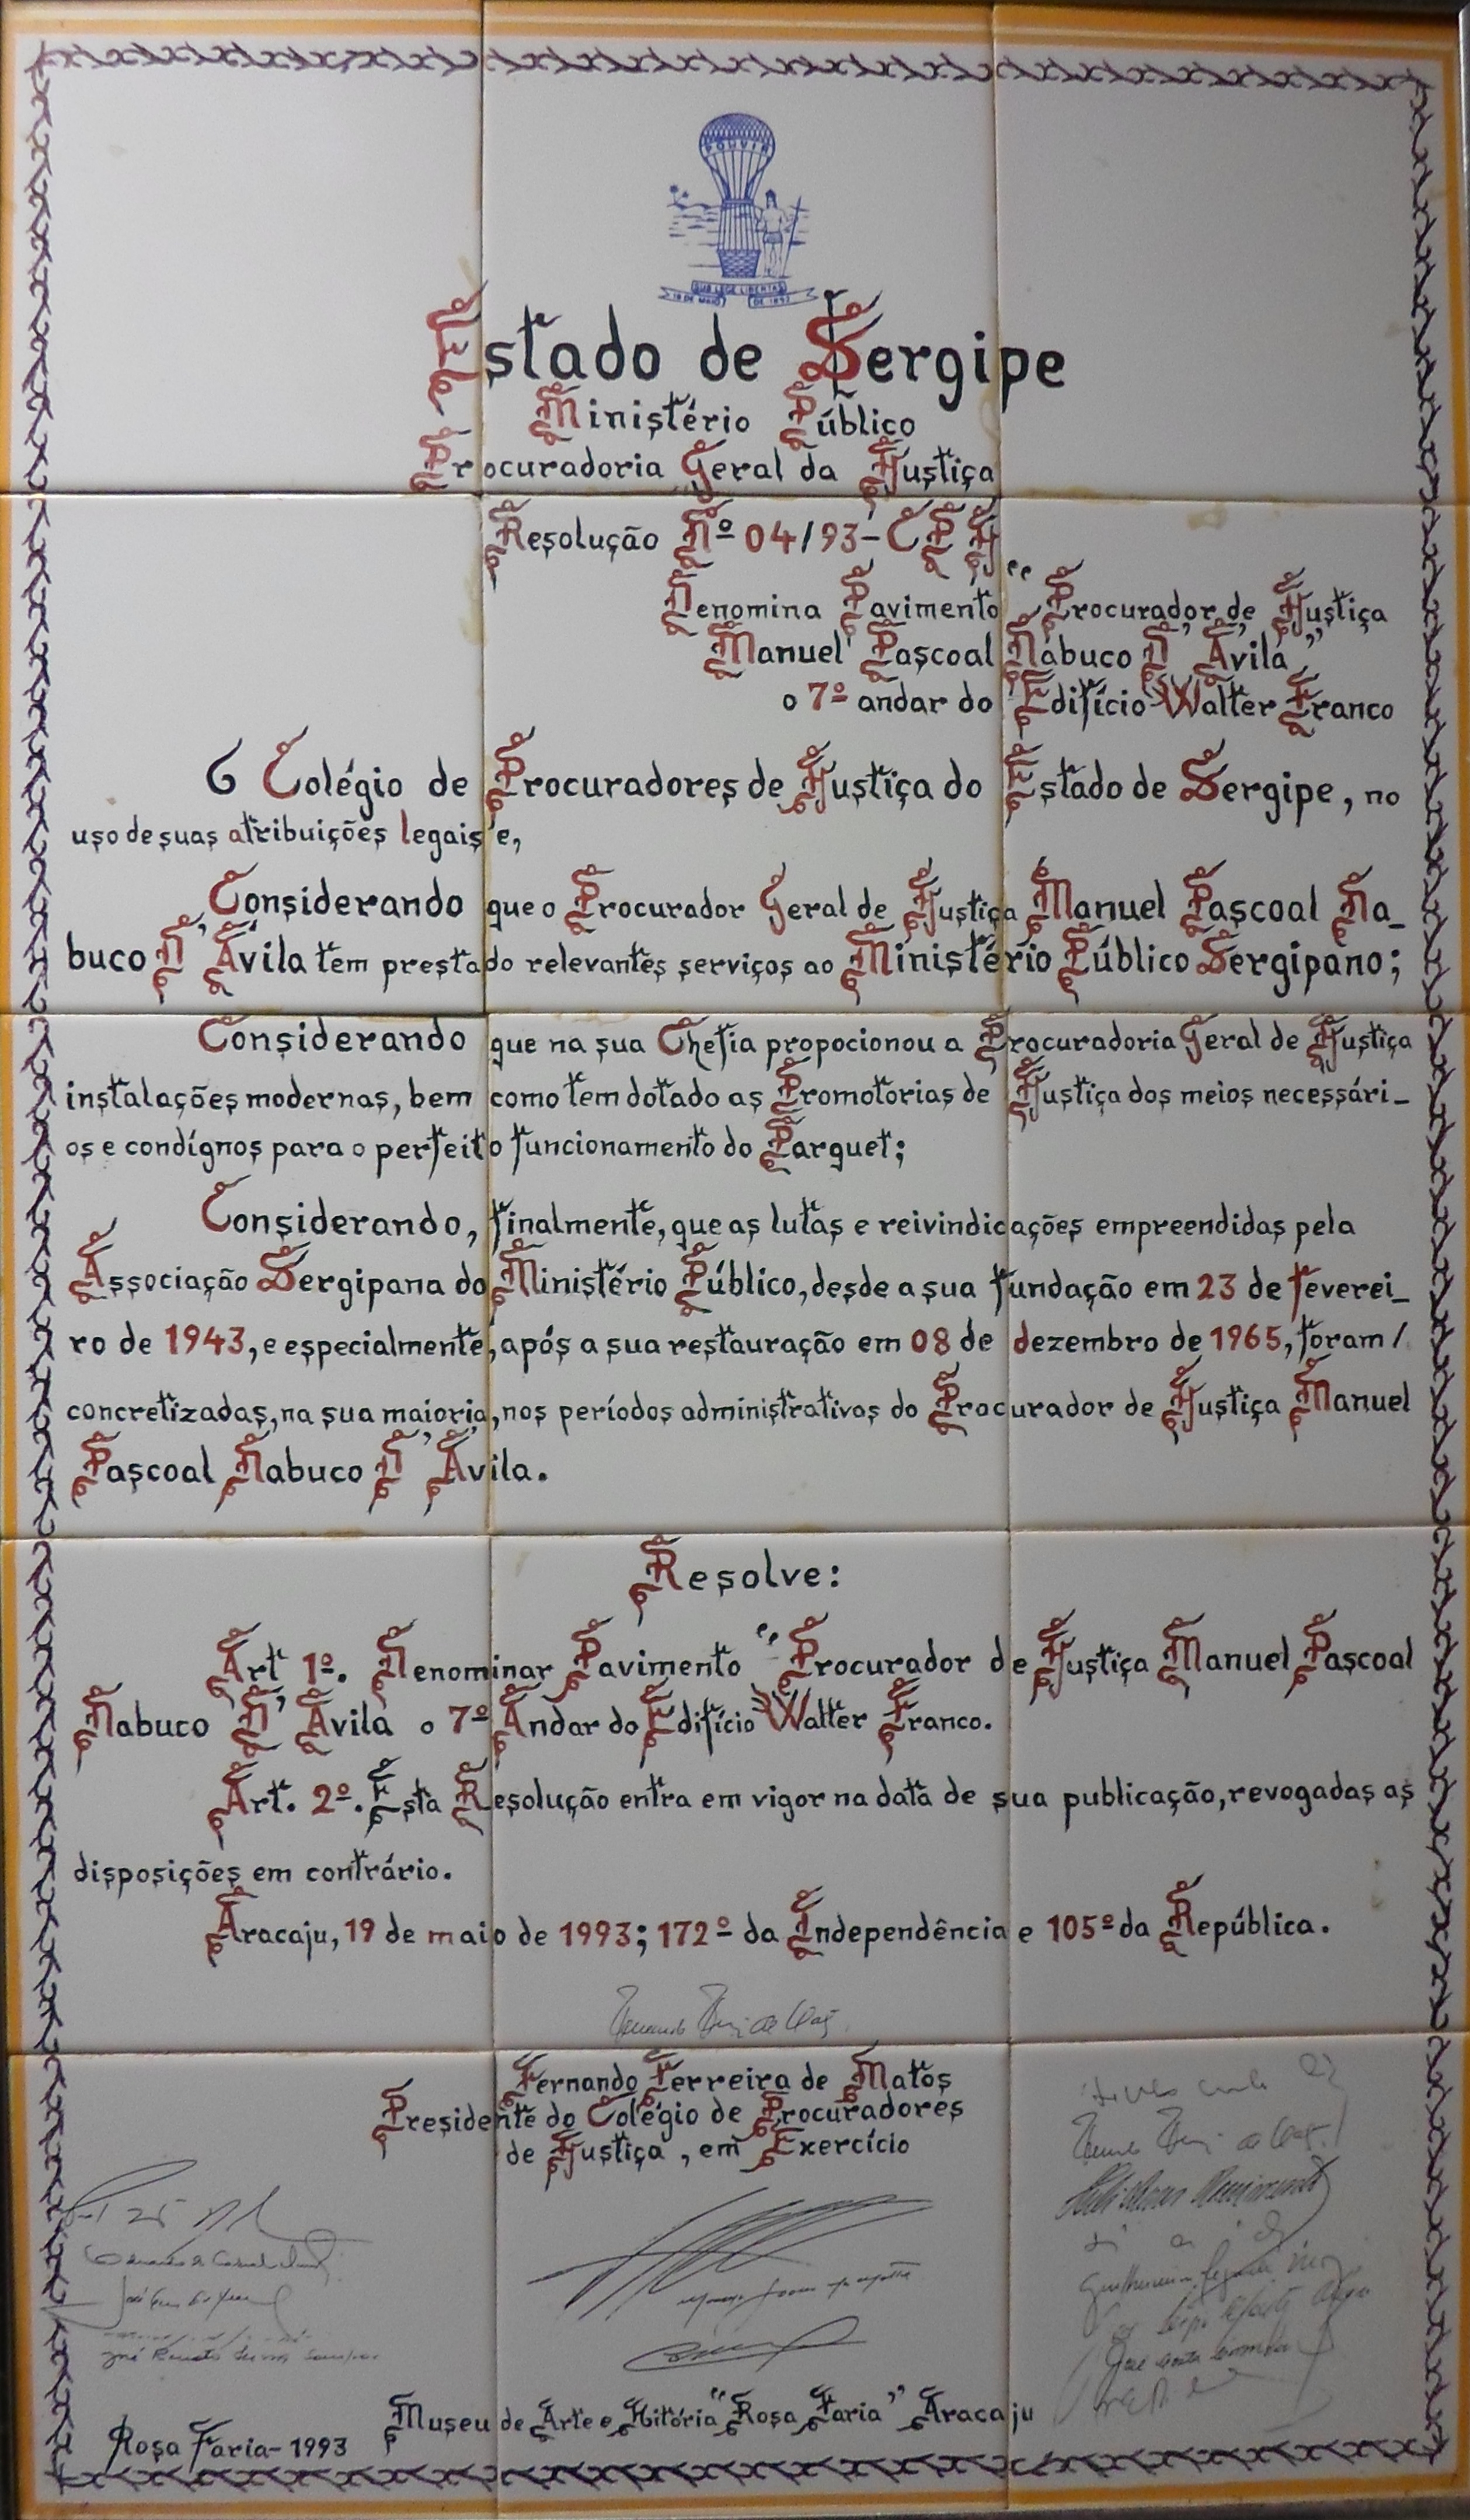 PORVIR
SUB LEGE LIBERTAS
18 DE MAIO DE 1892
Estado de Sergipe
Ministério Público
Procuradoria Geral da Justiça
Resolução Nº 04/93-CPJ
Denomina Pavimento "Procurador de Justiça
Manuel Pascoal Nabuco D'Ávila"
o 7º andar do Edifício Walter Franco
O Colégio de Procuradores de Justiça do Estado de Sergipe, no
uso de suas atribuições legais e,
Considerando que o Procurador Geral de Justiça Manuel Pascoal Na_
buco D'Ávila tem prestado relevantes serviços ao Ministério Público Sergipano;
Considerando que na sua Chefia propocionou a Procuradoria Geral de Justiça
instalações modernas, bem como tem dotado as Promotorias de Justiça dos meios necessári_
os e condígnos para o perfeito funcionamento do Parquet;
Considerando, finalmente, que as lutas e reivindicações empreendidas pela
Associação Sergipana do Ministério Público, desde a sua fundação em 23 de feverei_
ro de 1943, e especialmente, após a sua restauração em 08 de dezembro de 1965, foram /
concretizadas, na sua maioria, nos períodos administrativos do Procurador de Justiça Manuel
Pascoal Nabuco D'Ávila.
Resolve:
Art 1º. Denominar Pavimento "Procurador de Justiça Manuel Pascoal
Nabuco D'Ávila o 7º Andar do Edifício Walter Franco.
Art. 2º. Esta Resolução entra em vigor na data de sua publicação, revogadas as
disposições em contrário.
Aracaju, 19 de maio de 1993; 172º da Independência e 105º da República.
Fernando Ferreira de Matos
Presidente do Colégio de Procuradores
de Justiça, em Exercício
Museu de Arte e Hitória "Rosa Faria" Aracaju
Rosa Faria-1993